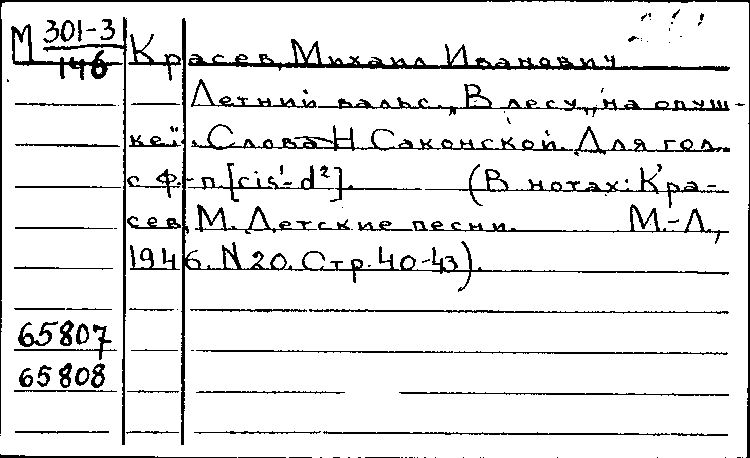 М 301-3
146
Красев, Михаил Иванович
Летний вальс. „В лесу, на опуш-
ке". Слова Н Саконской. Для гол.
с ф.-п. [cis¹-d²]. (В нотах: Кра-
сев, М. Детские песни. М.-Л.,
1946. N 20. Стр. 40-43).
65807
65808